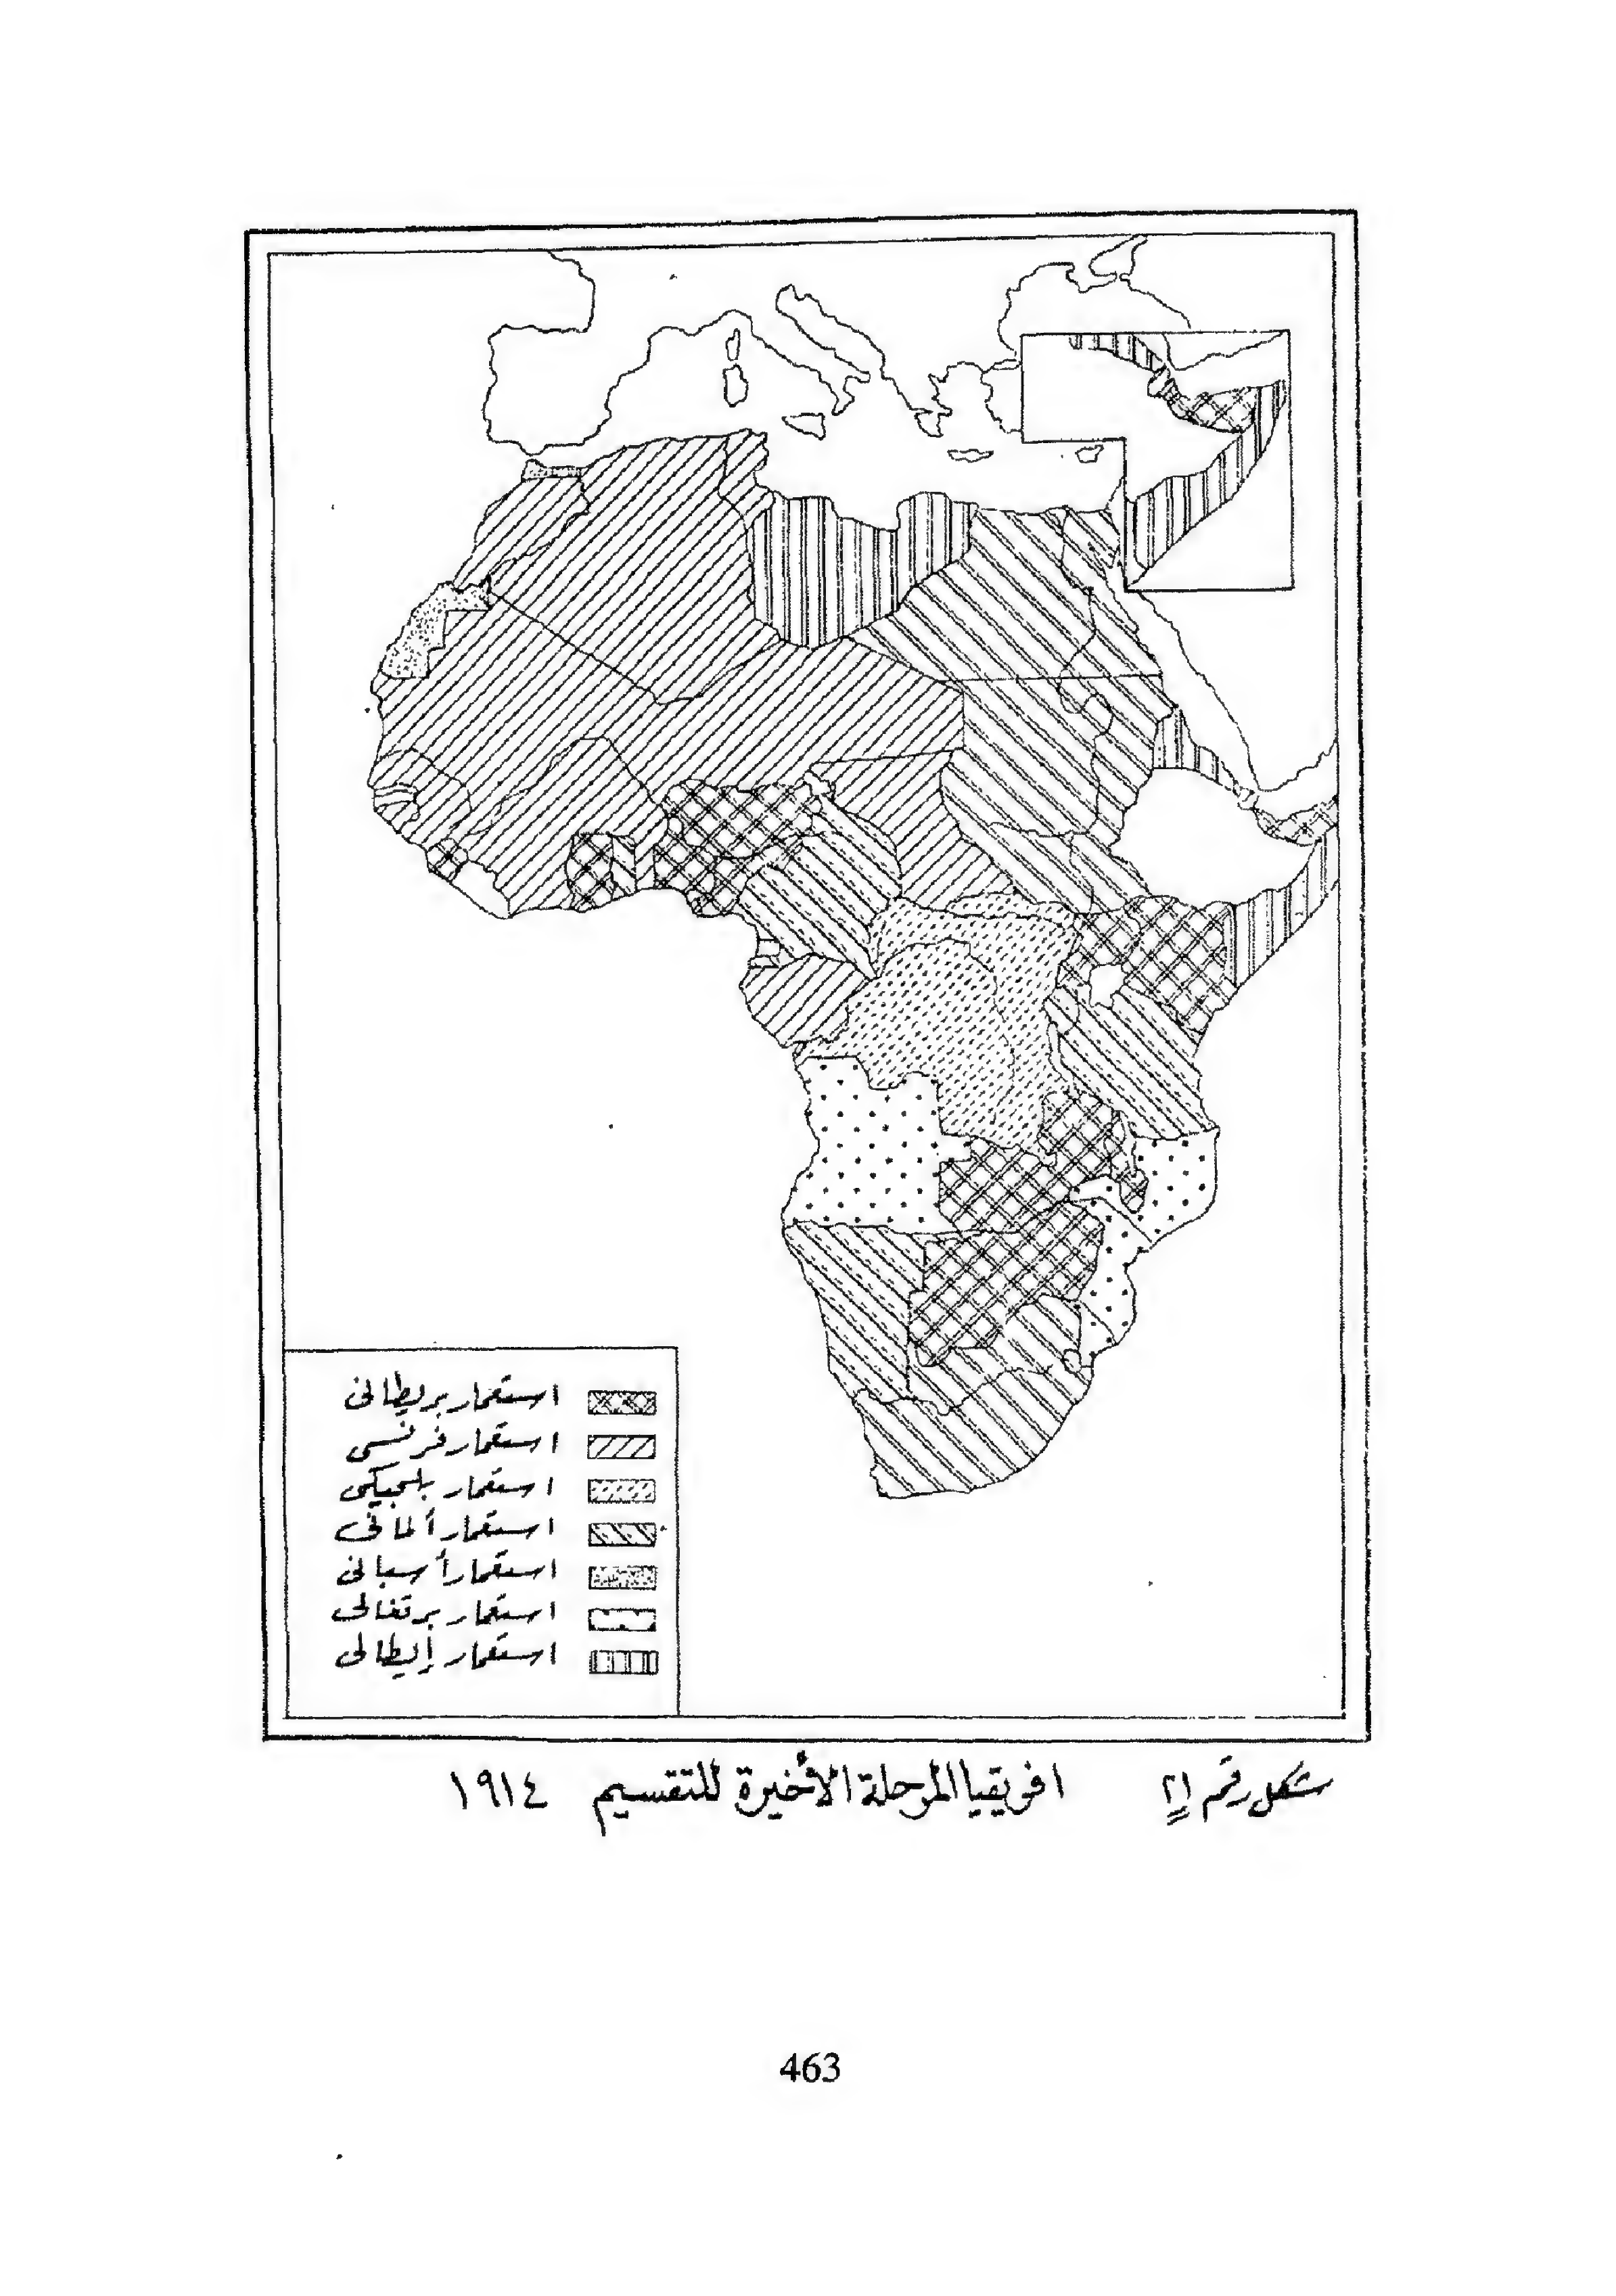 استعمار بريطانى
استعمار فرنسى
استعمار بلجيكى
استعمار ألمانى
استعمار أسبانى
استعمار برتغالى
استعمار إيطالى
شكل رقم ٢١ افريقيا المرحلة الأخيرة للتقسيم ١٩١٤
463